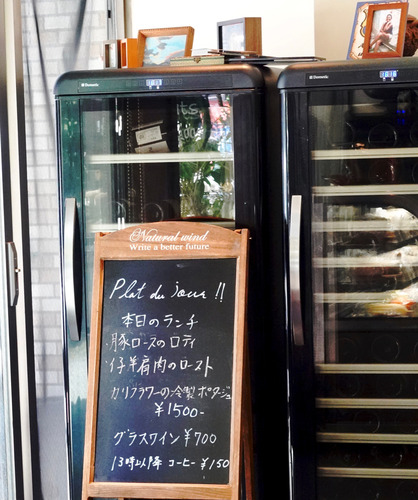 Dometic
Dometic
Natural wind
Write a better future
Plat du jour !!
本日のランチ
・豚ロースのロティ
・仔羊肩肉のロースト
カリフラワーの冷製ポタージュ
¥1500-
グラスワイン ¥700
13時以降 コーヒー ¥150